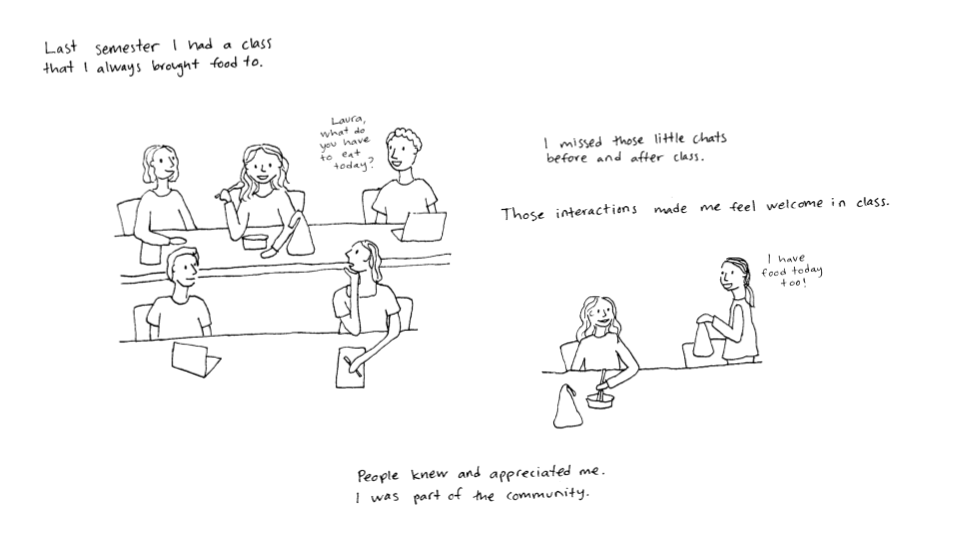 Last semester I had a class
that I always brought food to.
Laura,
what do
you have
to eat
today?
I missed those little chats
before and after class.
Those interactions made me feel welcome in class.
I have
food today
too!
People knew and appreciated me.
I was part of the community.